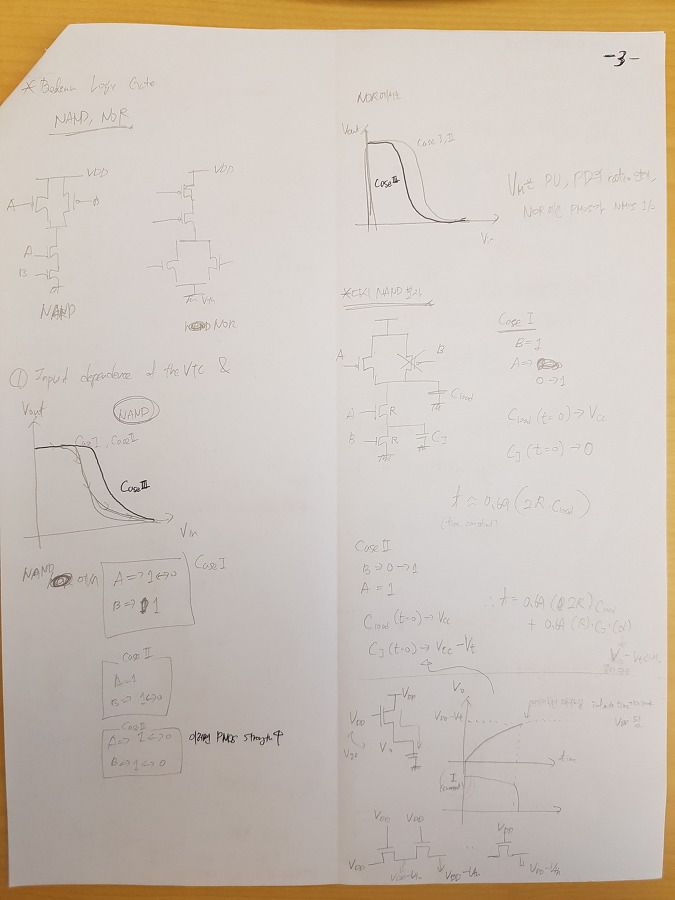 -3-
* Boolean Logic Gate
NAND, NOR
VDD
A
B
A
B
NAND
VDD
NOR
① Input dependence of the VTC &
NAND
Vout
Case I, Case II
Case III
Vin
NAND 에서
Case I
A => 1 <-> 0
B => 1
Case II
A = 1
B => 1 <-> 0
A => 1 <-> 0
B => 1 <-> 0
이러면 PMOS strength ↑
NOR에서
Vout
Case I, II
Case III
Vin
PU, PD의 ratio
NOR에선 PMOS가 NMOS
NAND
A
B
Cload
A
R
B
R
CJ
Case I
B = 1
A =>
0 → 1
Cload (t=0) → Vcc
CJ (t=0) → 0
t ≈ 0.69 (2R · Cload)
(time constant)
Case II
B => 0 → 1
A = 1
Cload (t=0) → Vcc
CJ (t=0) → Vcc - Vt
∴ t = 0.69 (2R) Cload
+ 0.69 (R)
VDD
VDD
Vo
Vo
VDD - Vt
time
I
(current)
VDD
VDD
VDD
VDD
VDD - Vtn
VDD - Vtn
VDD - Vtn